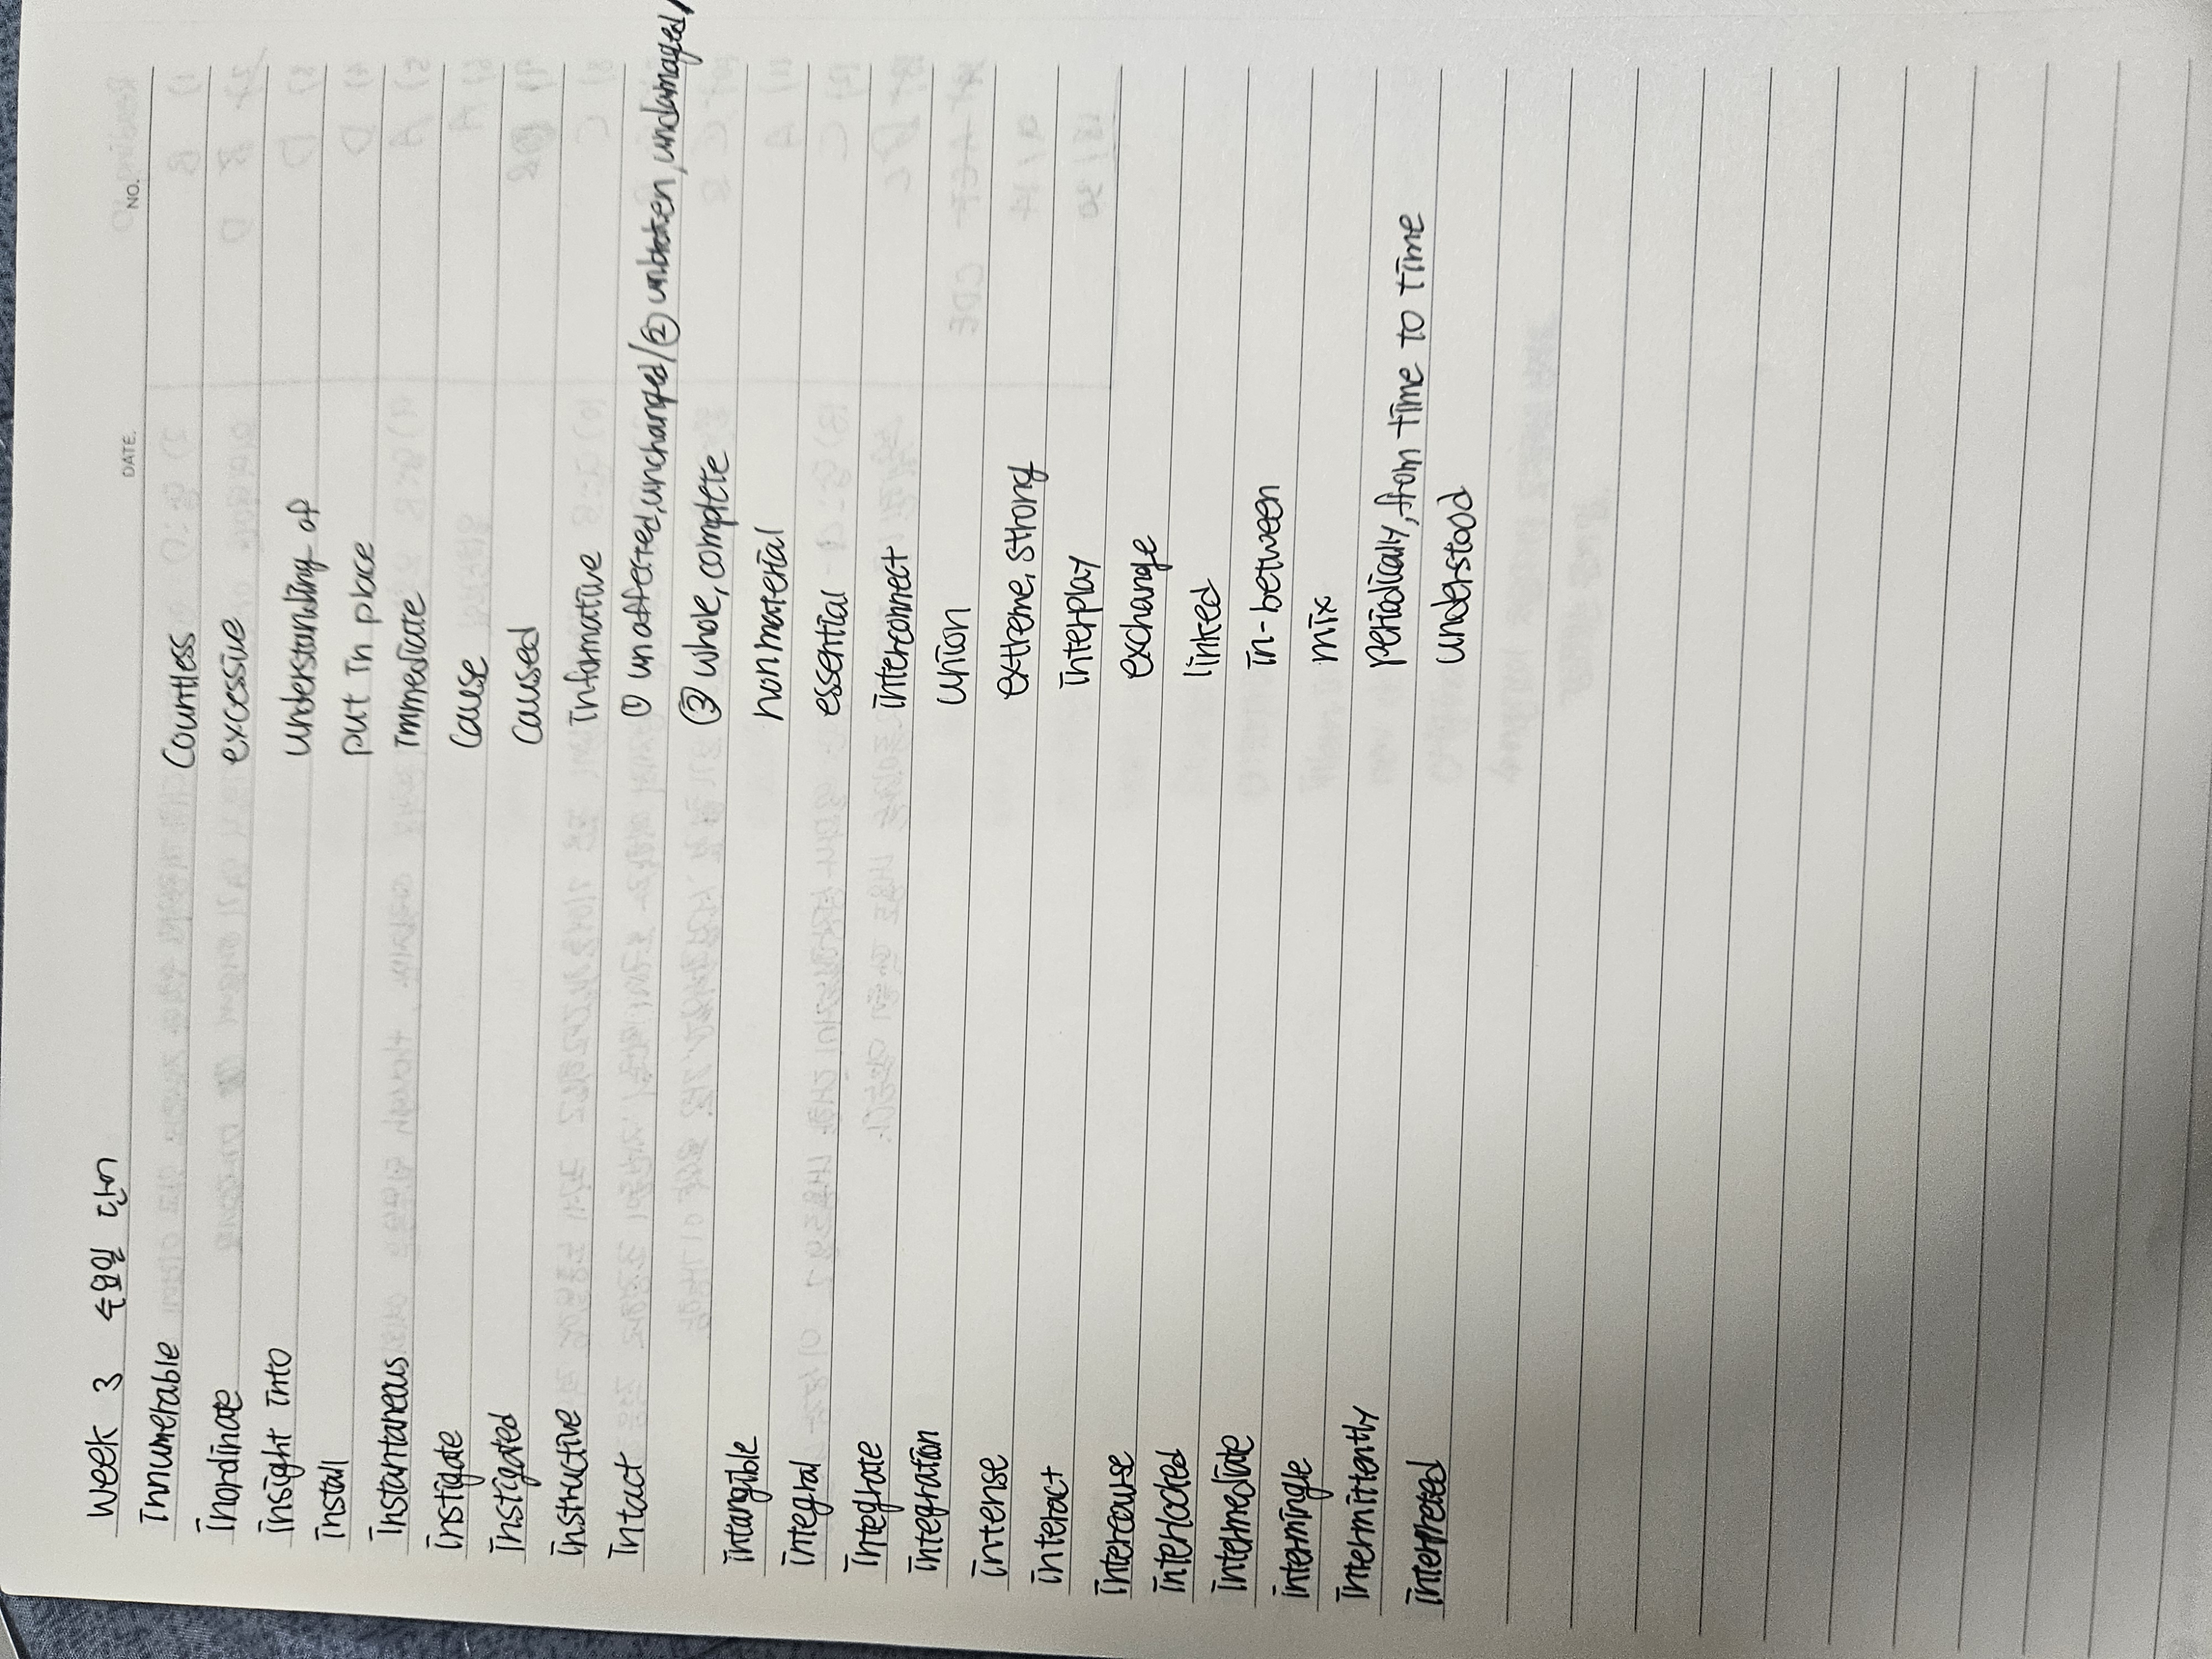 NO.
DATE.
Week 3 수요일 단어
Innumerable countless
Inordinate excessive
Insight into understanding of
Install put in place
Instantaneous immediate
Instigate cause
Instigated caused
Instructive informative
Intact ① unaffected, unchanged/② unbroken, undamaged/
③ whole, complete
intangible nonmaterial
integral essential
Integrate interconnect
integration union
intense extreme, strong
interact interplay
intercourse exchange
interlocked linked
Intermediate in-between
intermingle mix
Intermittently periodically, from time to time
interpreted understood